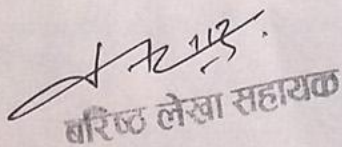 बरिष्ठ लेखा सहायक